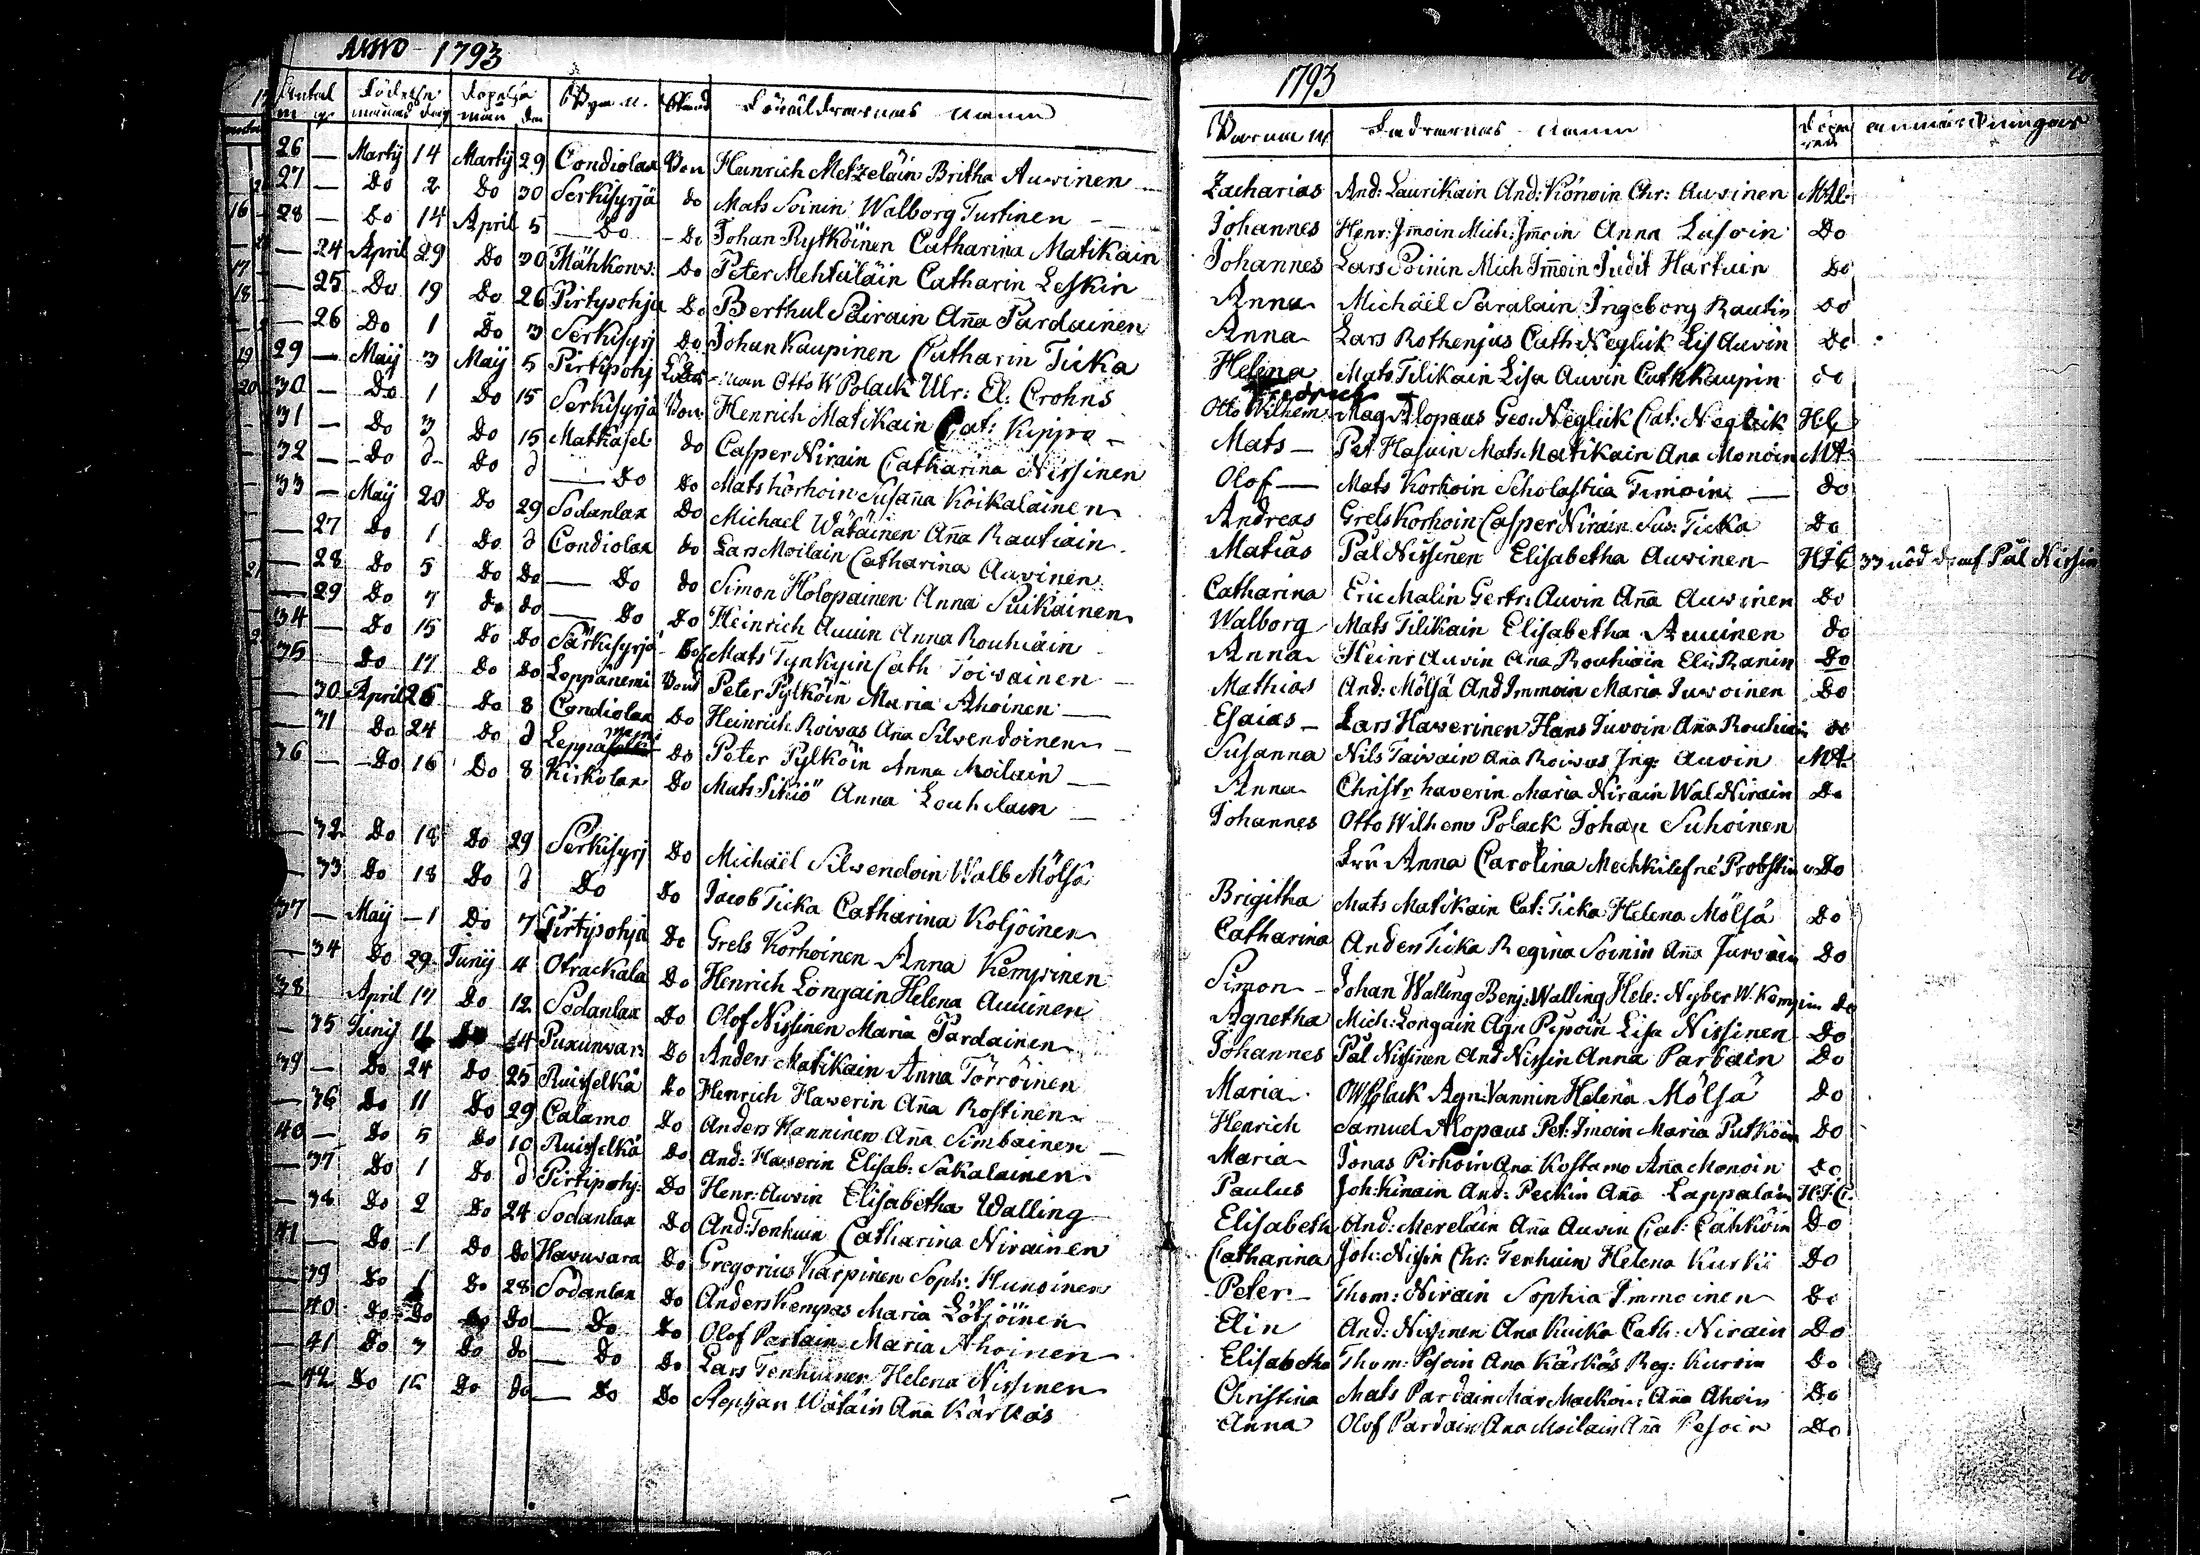 ANNO 1793
Antal Födelse Döpelse Bya n. Stånd Föräldrarnas namn
m q månad dag mån den
26 — Martij 14 Martij 29 Condiolax Bon Heinrich Metzeläin Britha Auvinen
27 — Do 2 Do 30 Serkisyrjä do Mats Soinin Walborg Turtinen
28 — Do 14 April 5 — Do Do Johan Rytköinen Catharina Matikain
— 24 April 29 Do 30 Mähkow: Do Peter Mehtäläin Catharin Leskin
— 25 Do 19 Do 26 Pirtipohja Do Berthul Pairain Aña Pardainen
— 26 Do 1 Do 3 Serkisyrj Do Johan Kaupinen Catharin Ticka
29 — Maij 3 Maij 5 Pirtipohj Otto W Polack Ulr: El: Crohns
30 — Do 1 Do 15 Serkisyrjä Bon Henrich Matikain Cat: Kippo
31 — Do 3 Do 15 Matkasel do Casper Nirain Catharina Nissinen
32 — Do d Do d — Do Do Mats Korhoin Susaña Koikalainen
33 — Maij 20 Do 29 Sodanlax Do Michael Wätäinen Aña Rautiain
— 27 Do 1 Do d Condiolax do Lars Moilain Catharina Auvinen
— 28 Do 5 Do Do — Do do Simon Holopainen Anna Suikainen
— 29 Do 7 Do do — Do Do Heinrich Auvin Anna Rouhiain
34 — Do 15 Do Do Särkisyrjä Mats Tynkyin Cath Toivainen
35 Do 17 Do Do Leppänemi Bond Peter Pylköin Maria Ahoinen
— 30 April 26 Do 8 Condiolax Do Heinrich Roivas Aña Silvendoinen
— 31 Do 24 Do d Leppä niemi Do Peter Pylköin Anna Moilain
36 — Do 16 Do 8 Kirkolax Do Mats Sikiö Anna Louhelain
— 32 Do 18 Do 29 Serkisyrj Do Michaël Silvendoin Walb Mölsä
— 33 Do 18 Do d Do do Jacob Ticka Catharina Koljoinen
37 — Maij 1 Do 7 Pirtipohja Do Grels Korhoinen Anna Kempinen
— 34 Do 29 Junij 4 Otrackala Do Henrich Longain Helena Auvinen
38 April 17 Do 12 Sodanlax Do Olof Nissinen Maria Pardainen
— 35 Junij 11 Do 14 Puxunwar: Do Anders Matikain Anna Törröinen
39 — Do 24 Do 25 Ruisselkä Do Henrich Haverin Aña Rostinen
— 36 Do 11 Do 29 Calamo Do Anders Hanninen Aña Simbainen
40 — Do 5 Do 10 Ruisselkä Do And: Haverin Elisab: Sakalainen
— 37 Do 1 Do d Pirtipohj: Do Henr: Auvin Elisabetha Walling
— 38 Do 2 Do 24 Sodanlax Do And: Tenhuin Catharina Nirainen
41 — Do 1 Do Do Havuvara Do Gregorius Karpinen Soph: Hunoinen
— 39 Do 1 Do 28 Sodanlax Do Anders Kempas Maria Lötjöinen
— 40 Do Do Do Do — Do Do Olof Partain Maria Ahoinen
— 41 Do 7 Do do — Do Do Lars Tenhuinen Helena Nissinen
— 42 Do 12 Do Do — Do Do Stephan Wätäin Aña Kärkäs
1793
Barnen N Faddrarnas namn Döpa ren anmärkningar
Zacharias And: Laurikain And: Könöin Chr: Auvinen MAl:
Johannes Henr: Jmoin Mich: Jmoin Anna Lasoin Do
Johannes Lars Poinin Mich Jmoin Judit Hartuin Do
Anna Michäel Saralain Ingeborg Rautin Do
Anna Lars Rothenjus Cath: Neglick Lis Auvin Do
Helena Mats Tilikain Lisa Auvin Cath Kaupin do
Fredrich
Otto Wilhem: Mag Alopaus Geo: Neglick Cat: Neglick
Mats — Pet Hasuin Mats Matikain Ana Monoin MA:
Olof — Mats Korhoin Scholastica Timoin — Do
Andreas Grels Korhoin Casper Nirain Sus: Ticka Do
Matias Pål Nissinen Elisabetha Auvinen HJC 33 nöd Pål Nissin
Catharina Eric Malin Gertr: Auvin Aña Auvinen Do
Walborg Mats Tilikain Elisabetha Auvinen Do
Anna Heinr Auvin Ana Rouhiain Elis Ranin Do
Mathias And: Mölsä And Immoin Maria Juvoinen Do
Esaias — Lars Haverinen Hans Juvoin Aña Rouhiain do
Susanna Nils Taivain Ana Roivas Jng: Auvin MA:
Anna Christr haverin Maria Nirain Wal Nirain Do
Johannes Otto Wilhem Polack Johan Suhoinen
Fru Anna Carolina Do
Brigitha Mats Matikain Cat: Ticka Helena Mölsä Do
Catharina Anders Ticka Regina Soinin Aña Jurvain Do
Simon — Johan Walling Benj: Walling Hele: Nyber W. Kempin do
Agnetha Mich: Longain Agn Piipoin Lisa Nissinen Do
Johannes Pål Nissinen And Nissin Anna Partain Do
Maria OW Polack Agn: Vannin Helena Mölsä Do
Henrich Samuel Alopaus Pet: Jmoin Maria Putköin Do
Maria Jonas Pirhoin Ana Kostamo Aña Monoin Do
Paulus Joh: Kinain And: Peckin Aña Lappalain H:J:C:
Elisabeth And: Merelain Aña Auvin Cat: Cähköin Do
Catharina Joh: Nissin Chr: Tenhuin Helena Kurki Do
Peter — Thom: Nirain Sophia Jmmoinen Do
Elin And: Nissinen Ana Kuika Cath: Nirain Do
Elisabetha Thom: Pesoin Ana Kärkäs Reg: Kurvin Do
Christina Mats Pardain Mar Mackoin: Aña Ahoin Do
Anna Olof Pardain Ana Moilain Aña Pesoin Do